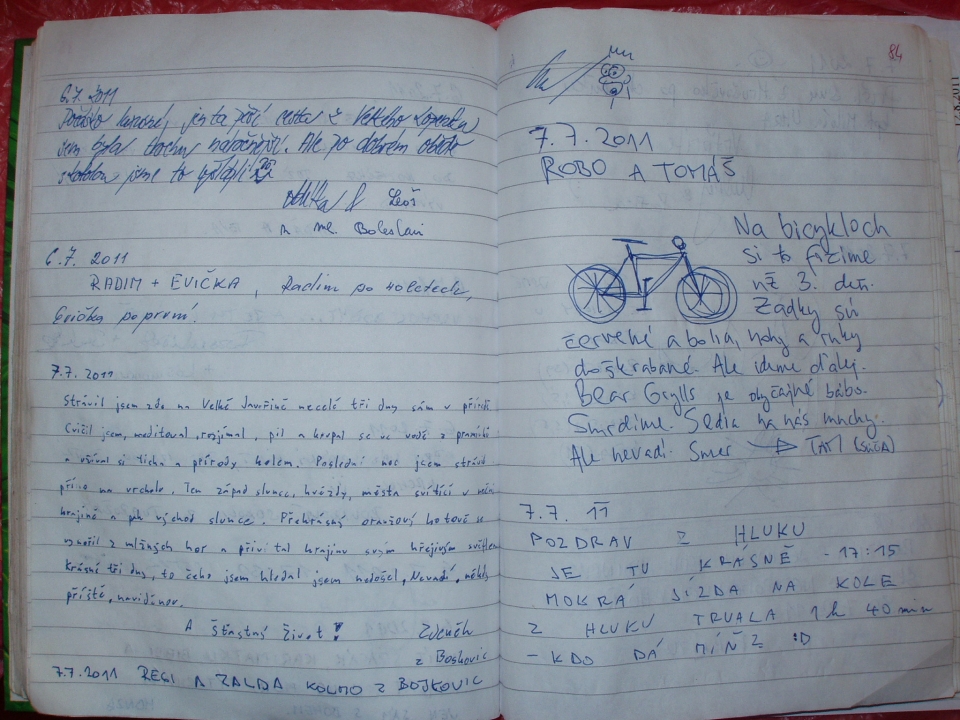 6.7. 2011
jen ta pěší cesta z Velkého
jsem byla trochu náročnější. Ale po dobrém obědě
jsme to
Leoš
Boleslavi
6.7. 2011
RADIM + EVIČKA, Radim po 40 letech,
Evička poprvní.
7.7. 2011
Strávil jsem zde na Velké Javořině necelé tři dny sám v přírodě
Cvičil jsem, meditoval, rozjímal, pil a koupal se ve vodě z pramínků
a užíval si ticha a přírody kolem. Poslední noc jsem strávil
přímo na vrcholu. Ten západ slunce, hvězdy, města svítící v noční
krajině a pak východ slunce. Překrásný oranžový kotouč se
vynořil z mlžných hor a přivítal krajinu svým hřejivým světlem
Krásné tři dny, to čeho jsem hledal jsem nedošel, Nevadí, někdy
příště, naviděnou.
A šťastný život!
Zdeněk
z Boskovic
7.7.2011 REGI A ZALDA KOLMO Z BOJKOVIC
84
7.7.2011
ROBO A TOMÁŠ
Na bicykloch
si to fičíme
už 3. deň.
Zadky sú
červené a bolia, nohy a ruky
doškrabané. Ale ideme ďalej.
Bear Grylls je obyčajné bábo.
Smrdíme. Sedia na nás muchy.
Ale nevadí. Smer
7.7. 11
POZDRAV Z HLUKU
JE TU KRÁSNĚ - 17:15
MOKRÁ JÍZDA NA KOLE
Z HLUKU TRVALA 1h 40 min
- KDO DÁ MÍŇ? :D